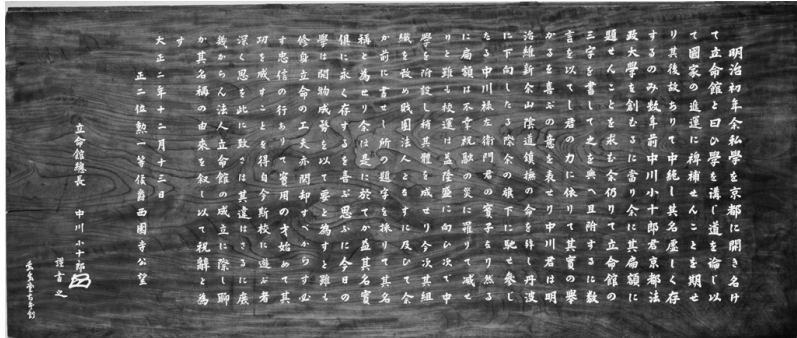 明治初年余私學を京都に開き名け
て立命館と曰ひ學を講じ道を論じ以
て國家の進運に裨補せんことを期せ
り其後故ありて中絶し其名虚しく存
するのみ數年前中川小十郎君京都法
政大學を創むるに當り余に其扁額に
題せんことを求む余仍りて立命館の
三字を書して之を與へ且附するに數
言を以てし君の力に依りて其實の擧
かるを喜ぶの意を表せり中川君は明
治維新余山陰道鎮撫の命を拜し丹波
に下向したる際余の旗下に馳せ參じ
なる中川禄左衛門君の實子なり然る
に扁額は不幸祝融の災に罹りて滅せ
りと雖も校運は益隆盛に向ひ次で中
學を附設し稍其體を成せり今次其組
織を改め財團法人となすに及びて余
が前に書せし所の題字を採りて其名
稱と為せり余は是に於てか益其名實
倶に永く存するを喜ぶ思ふに今日の
學は開物成務を以て要と為すと雖も
修身立命の工夫亦閑却すべからず必
す忠信の行ありて實用の才始めて其
功を成すことを得自今斯校に遊ぶ者
深く思を此に致さは其違はさるに庶
幾からん法人立命館の成立に際し聊
か其名稱の由來を叙し以て祝辭と為
す
大正二年十二月十三日
正二位勲一等侯爵西園寺公望
立命館總長 中川小十郎
謹書之